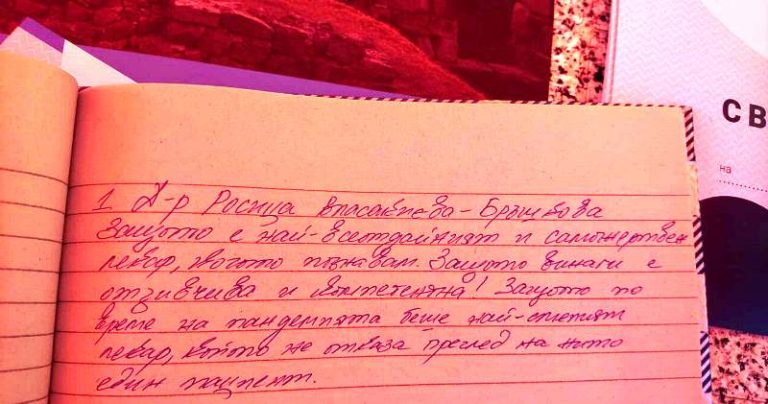 СВ
на
1. Д-р Росица Бръшкова
Защото е най-всеотдайният и саможертвен
лекар, когото познавам. Защото винаги е
отзивчива и компетентна! Защото по
време на пандемията беше най-смелият
лекар, който не отказа преглед на нито
един пациент.